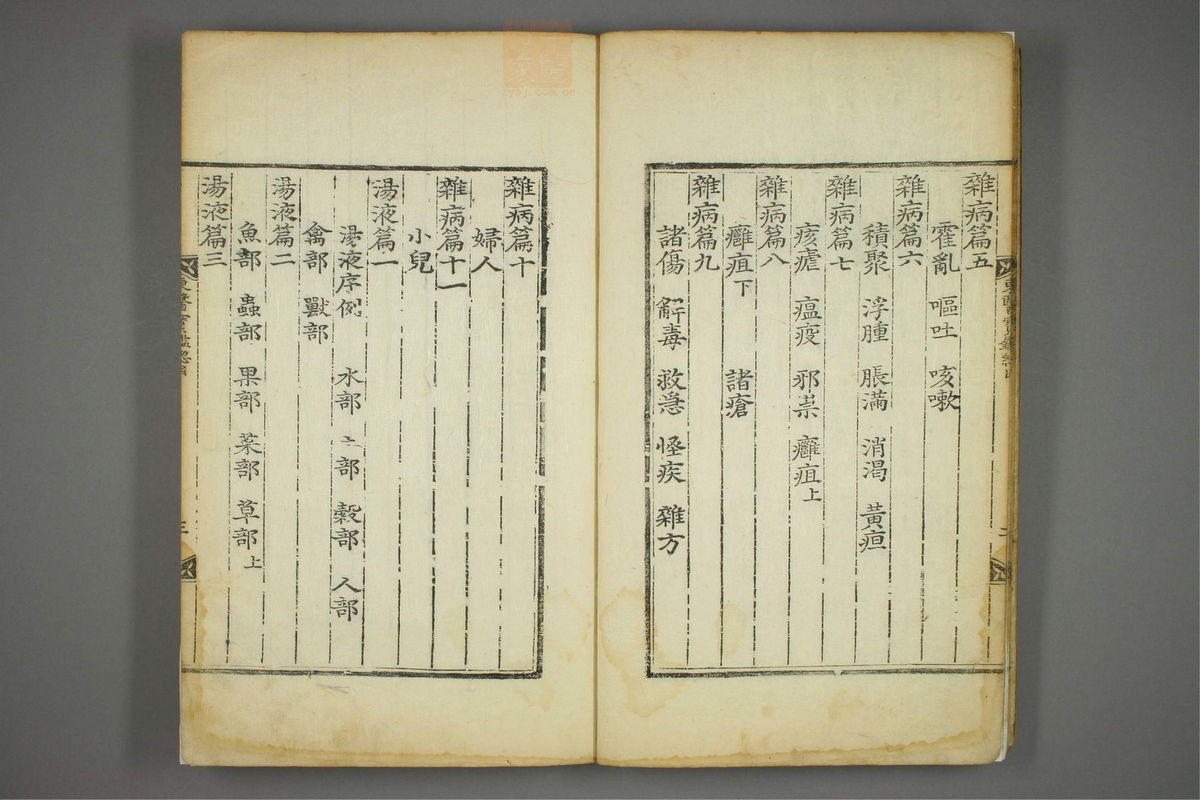 雜病篇五
霍亂 嘔吐 咳嗽
雜病篇六
積聚 浮腫 脹滿 消渴 黃疸
雜病篇七
痎瘧 瘟疫 邪祟 癰疽上
雜病篇八
癰疽下 諸瘡
雜病篇九
諸傷 解毒 救急 怪疾 雜方
雜病篇十
婦人
雜病篇十一
小兒
湯液篇一
湯液序例 水部 土部 穀部 人部
禽部 獸部
湯液篇二
魚部 蟲部 果部 菜部 草部上
湯液篇三
東醫寶鑑總目
三
zysj.com.cn